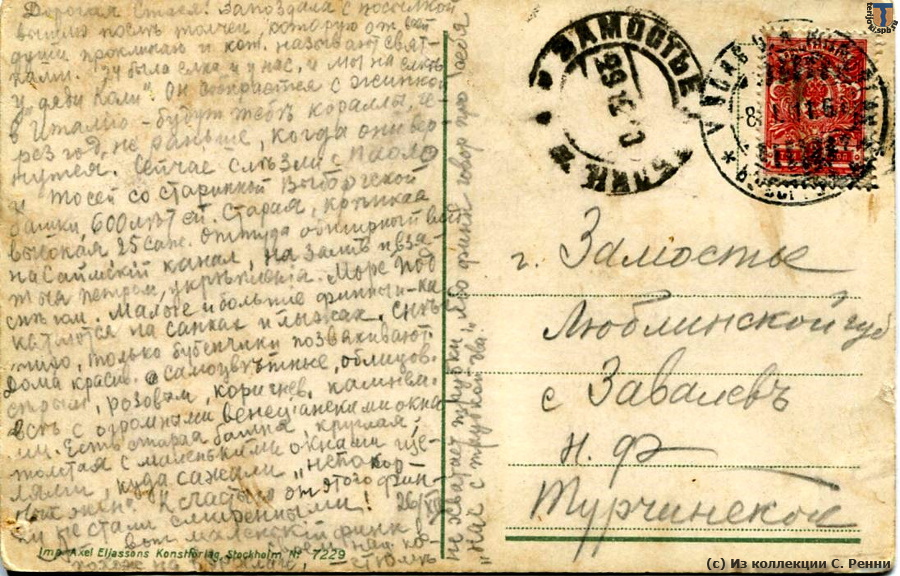 Дорогая Стася! Запоздала с посылкой
вышлю послѣ толчеи, которую от всей
души проклинаю и кот. называют свят-
ками. Тут была елка и у нас, и мы на елкѣ
у „дяди Коли“. Он собирается с женкой
в Италію – будут тебѣ кораллы, че-
рез год, не раньше, когда они вер-
нутся. Сейчас слѣзли с
и Тосей со старинной Выборгской
башни, 600 лѣт ей. Старая, крѣпкая
высокая 25 саж. Оттуда обширный вид
на Саймскій канал, на залив и взя-
тыя Петром, укрѣпленія. Море под
снѣгом. Малые и большіе финны
катются на санках и лыжах.
тихо, только бубенчики позвякивают.
Дома красив. самоцвѣтные, облицов.
сѣрым, розовым, коричнев. камнем.
всѣ с огромными венеціанскими окна-
ми. Есть старая башня, круглая,
толстая с маленькими окнами ще-
лями, куда сажали „непокор-
ных жен“. К счастью от этого фин-
ки не стали смиренными! 26/XII
вот маленькій финк в
похож на
не хватает трубки. Ибо финн говор. про себя
„нас с трубкой два“.
ЗАМОСТЬЕ
г. Замостье
Люблинской губ
с Завалевъ
н. ф
Турчинской
Imp. Axel Eliassons Konstförlag, Stockholm. Nr 7229
terijoki.spb.ru
(c) Из коллекции С. Ренни